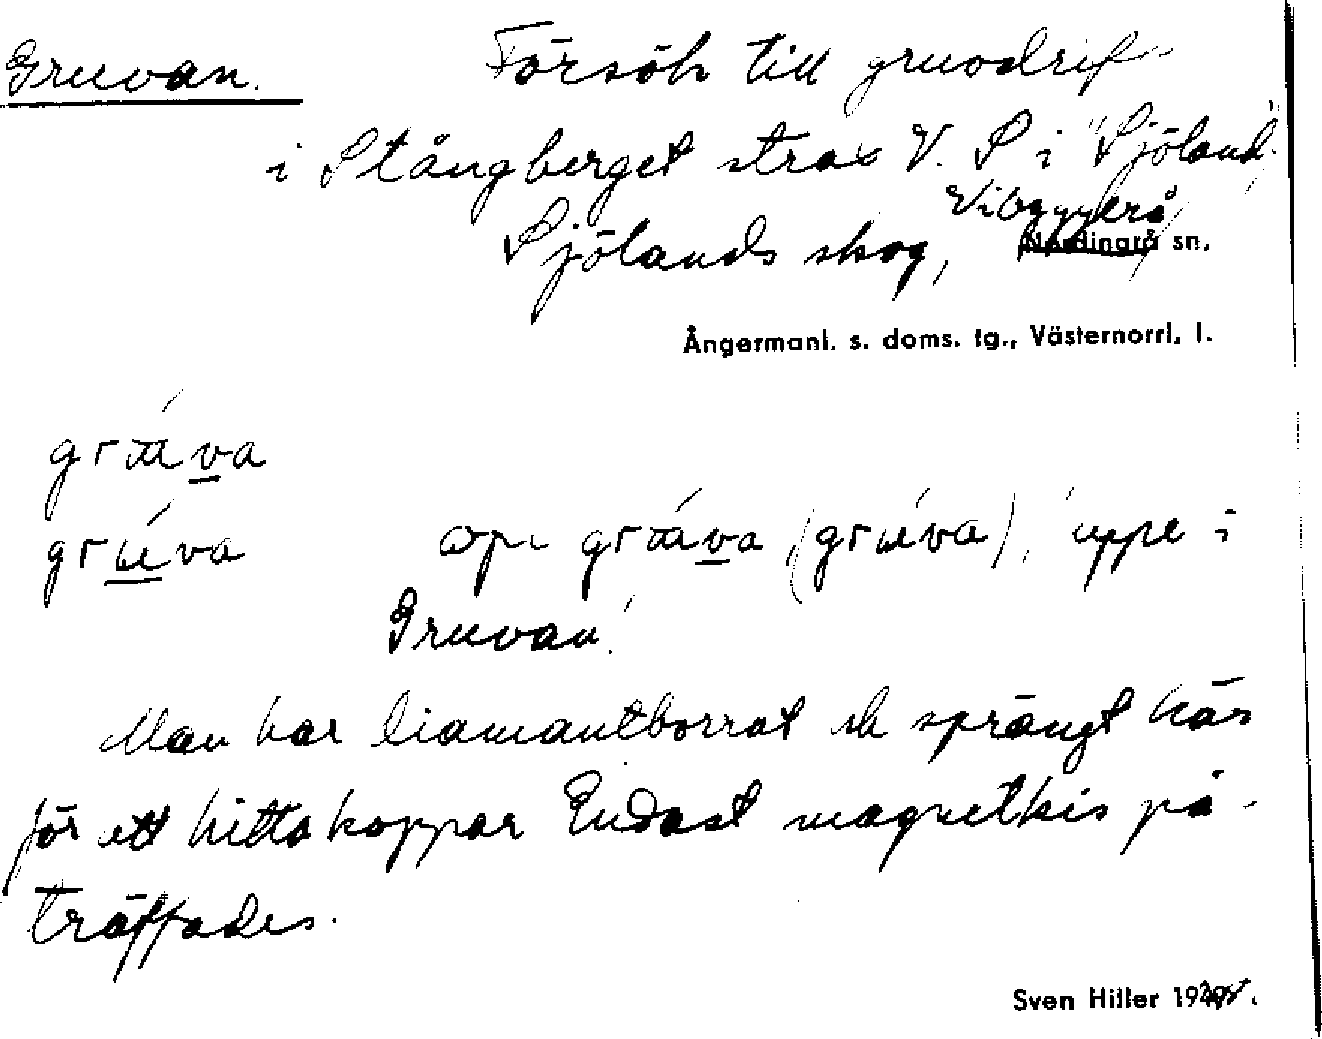 Gruvan. Försök till gruvdrift
i Stångberget strax V. S i "Sjöland"
Vibyggerå
Sjölands skog, Nordingrå sn.
Ångermanl. s. doms. tg., Västernorrl. l.
gruva
gruva opi gruva (gruva), 'uppe i
Gruvan'.
Man har diamantborrat ok sprängt här
för att hitta koppar Endast magnetkis på-
träffades.
Sven Hiller 19